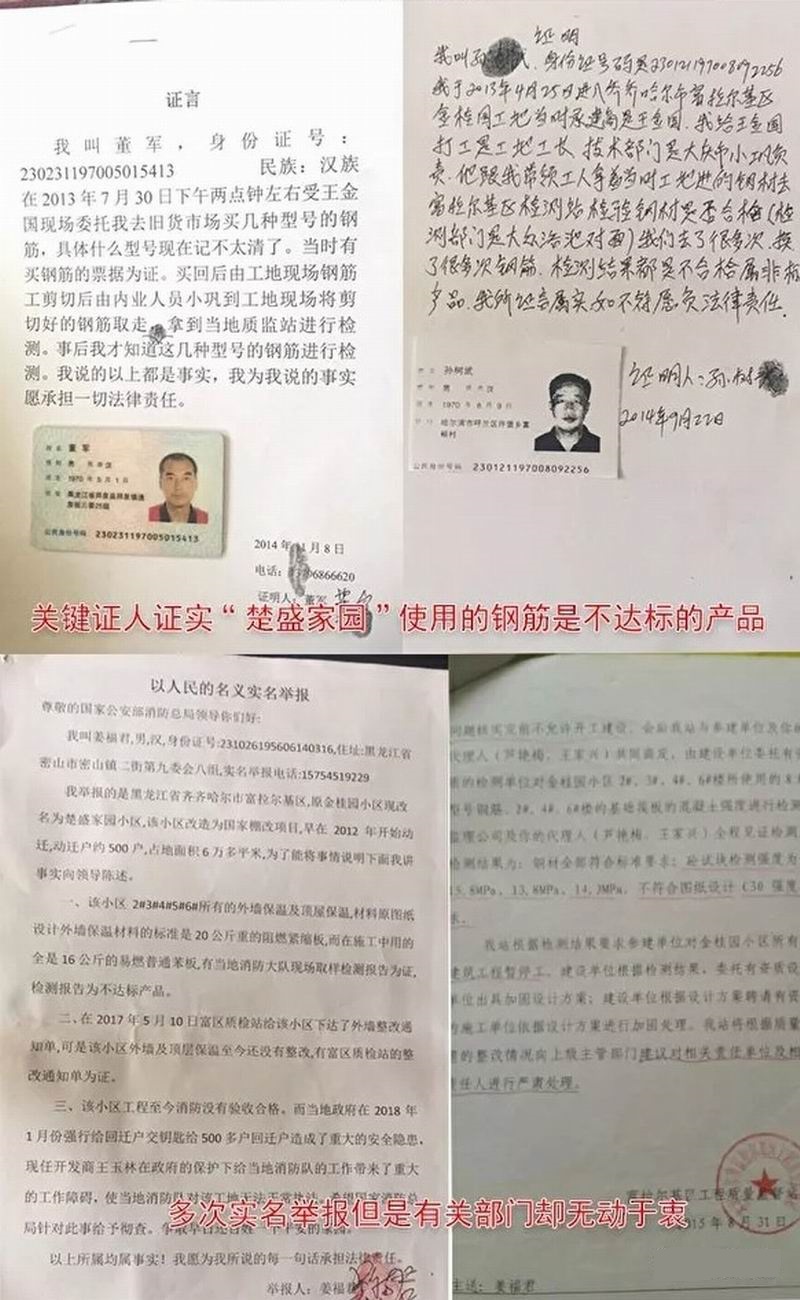 证言
我叫董军，身份证号：
230231197005015413 民族：汉族
在2013年7月30日下午两点钟左右受王金
国现场委托我去旧货市场买几种型号的钢
筋，具体什么型号现在记不太清了。当时有
买钢筋的票据为证。买回后由工地现场钢筋
工剪切后由内业人员小巩到工地现场将剪
切好的钢筋取走 拿到当地质监站进行检
测。事后我才知道这几种型号的钢筋进行检
测。我说的以上都是事实，我为我说的事实
愿承担一切法律责任。
姓名 董军
性别 男 民族 汉
出生 1970年5月1日
公民身份号码 230231197005015413
2014年 1月8日
电话： 06866620
证明人：董军
证明
我叫孙 武，身份证号码是230121197008092256
我于2013年4月25日进入齐齐哈尔市富拉尔基区
金桂园工地当时承建商是王金国，我给王金国
打工是工地工长，技术部门是大庆市小巩负
责。他跟我带领工人拿着当时工地进的钢材去
富拉尔基区检测站检验钢材是否合格（检
测部门是大众浴池对面）我们去了很多次，换
了很多次钢筋，检测结果都是不合格属非标
产品。我所证言属实如不符愿负法律责任。
孙树武
男 汉
1970年8月9日
哈尔滨市呼兰区许堡乡富
裕村
公民身份号码 230121197008092256
证明人：孙树
2014年9月22日
关键证人证实“楚盛家园”使用的钢筋是不达标的产品
以人民的名义实名举报
尊敬的国家公安部消防总局领导你们好：
我叫姜福君,男,汉,身份证号:231026195606140316,住址:黑龙江省
密山市密山镇二街第九委会八组,实名举报电话:15754519229
我举报的是黑龙江省齐齐哈尔市富拉尔基区,原金桂园小区现改
名为楚盛家园小区,该小区改造为国家棚改项目,早在 2012 年开始动
迁,动迁户约 500 户,占地面积 6 万多平米,为了能将事情说明下面我讲
事实向领导陈述。
一、该小区 2#3#4#5#6#所有的外墙保温及顶屋保温,材料原图纸
设计外墙保温材料的标准是 20 公斤重的阻燃紧缩板,而在施工中用的
全是 16 公斤的易燃普通苯板,有当地消防大队现场取样检测报告为证,
检测报告为不达标产品。
二、在 2017 年 5 月 10 日富区质检站给该小区下达了外墙整改通
知单,可是该小区外墙及顶层保温至今还没有整改,有富区质检站的整
改通知单为证。
三、该小区工程至今消防没有验收合格。而当地政府在 2018 年
1 月份强行给回迁户交钥匙给 500 多户回迁户造成了重大的安全隐患,
现任开发商王玉林在政府的保护下给当地消防队的工作带来了重大
的工作障碍，使当地消防队对该工地无法正常执法,希望国家消防总
局针对此事给予彻查。争取早日还百姓一个平安的家园。
以上所属均属事实！我愿为我所说的每一句话承担法律责任。
举报人：姜福君
问题核实完前不允许开工建设。会后我站与参建单位及你的
代理人（芦艳梅、王家兴）共同商定，由建设单位委托有资
质的检测单位对金桂园小区 2#、3#、4#、6#楼所使用的
型号钢筋，2#、4#、6#楼的基础筏板的混凝土强度进行检测
监理公司及你的代理人（芦艳梅、王家兴）全程见证检测
检测结果为：钢材全部符合标准要求；砼试块检测强度为
15.8MPa、13.8MPa、14.2MPa，不符合图纸设计（C30 强度
求。
我站根据检测结果要求参建单位对金桂园小区所有
建筑工程暂停工。建设单位根据检测结果，委托有资质设
单位出具加固设计方案；建设单位根据设计方案聘请有资
的施工单位依据设计方案进行加固处理。我站将根据质量
题的整改情况向上级主管部门建议对相关责任单位及相
责任人进行严肃处理。
富拉尔基区工程质量监督站
2015年8月31日
主送：姜福君
多次实名举报但是有关部门却无动于衷